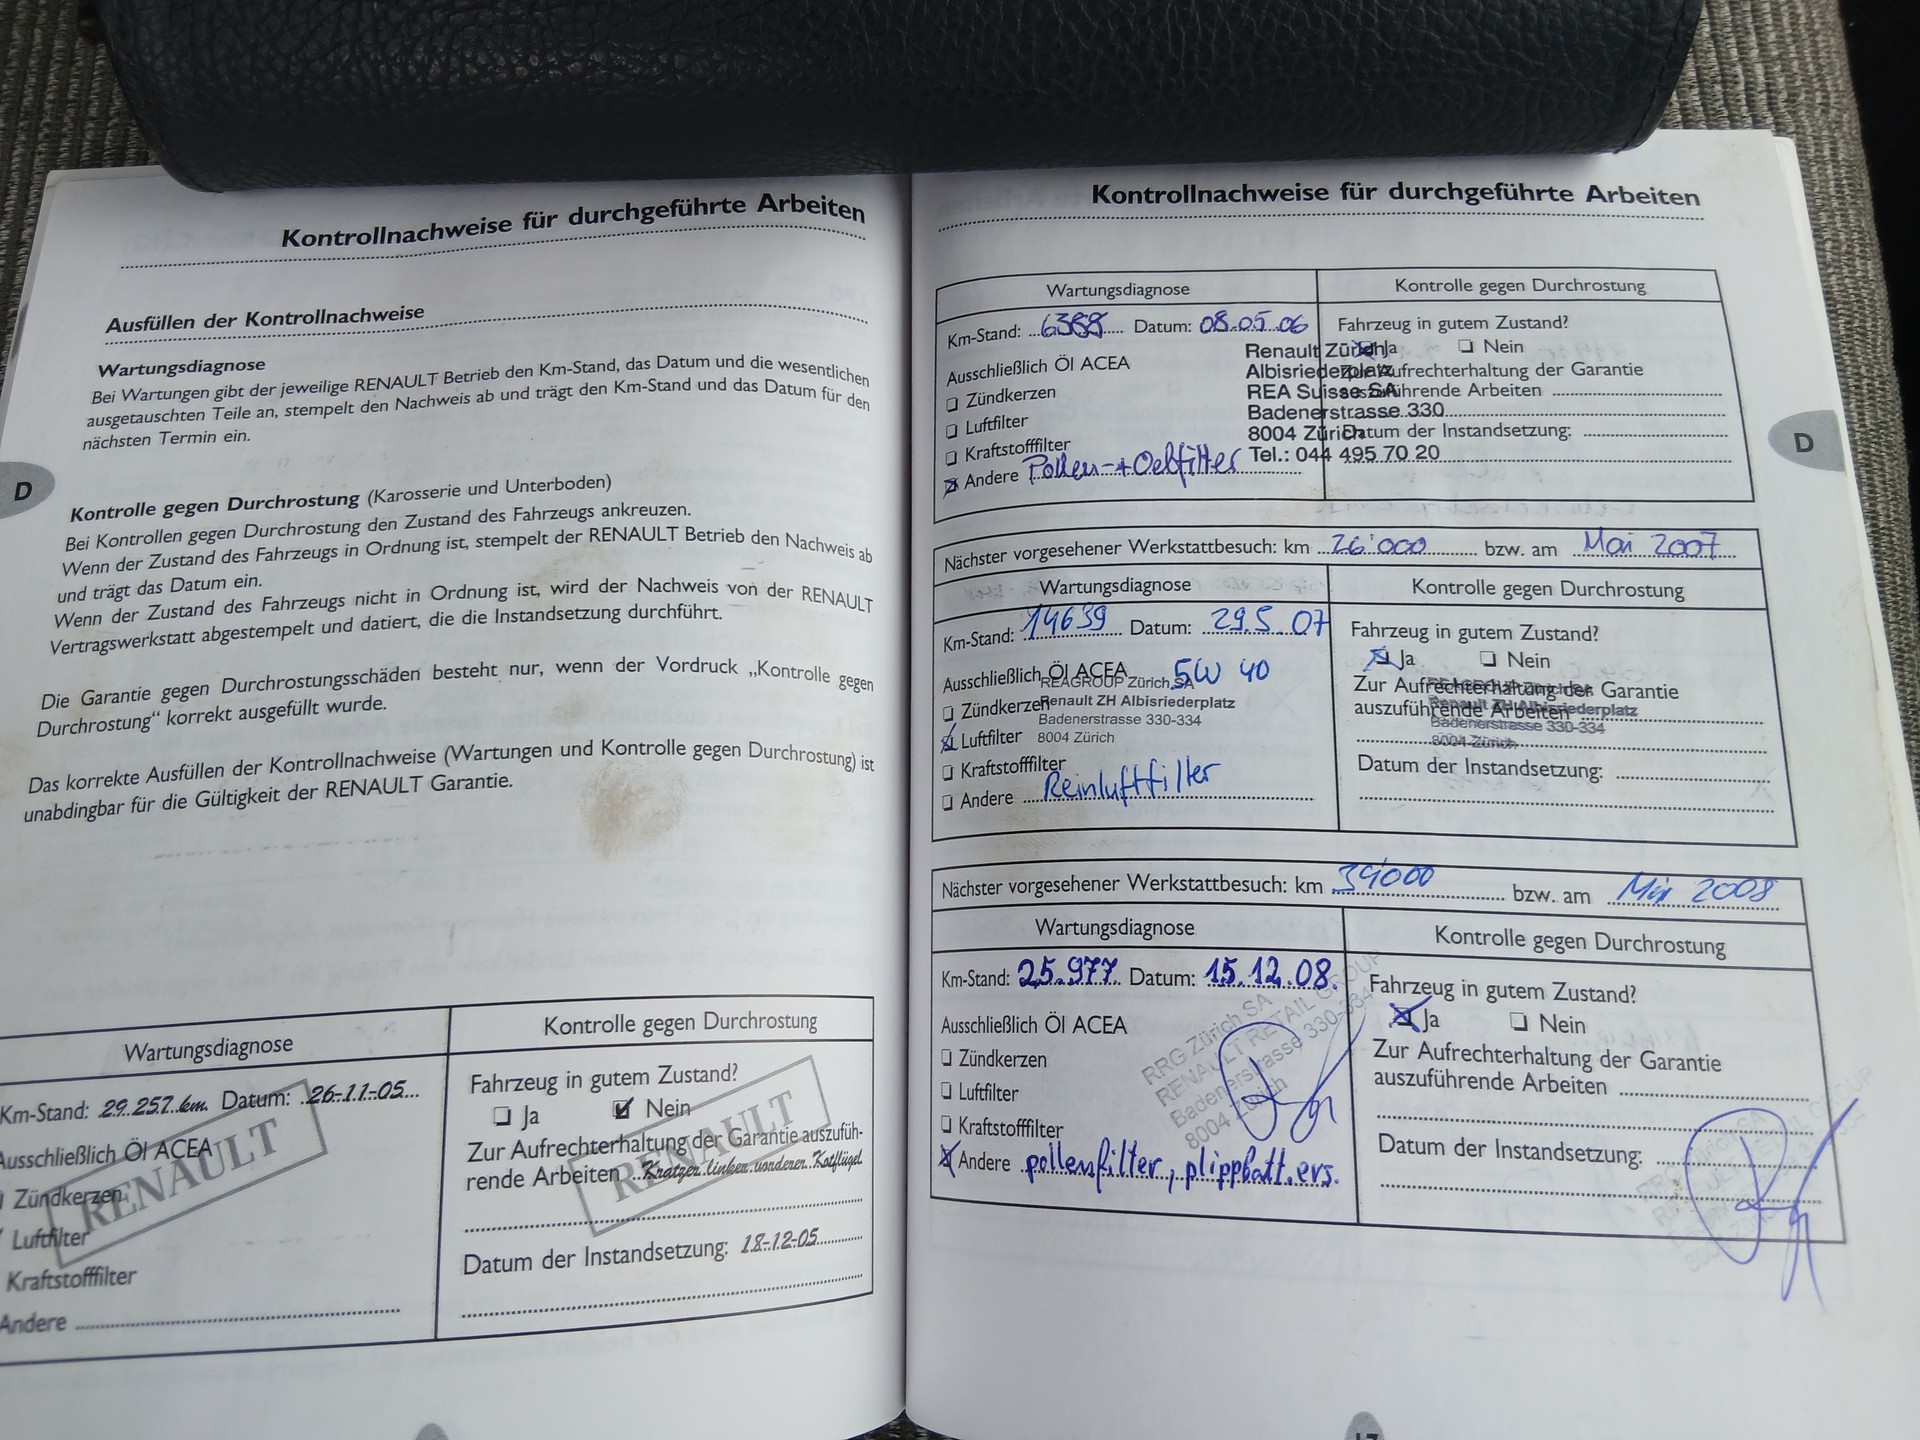 Kontrollnachweise für durchgeführte Arbeiten
Ausfüllen der Kontrollnachweise
Wartungsdiagnose
Bei Wartungen gibt der jeweilige RENAULT Betrieb den Km-Stand, das Datum und die wesentlichen
ausgetauschten Teile an, stempelt den Nachweis ab und trägt den Km-Stand und das Datum für den
nächsten Termin ein.
D
Kontrolle gegen Durchrostung (Karosserie und Unterboden)
Bei Kontrollen gegen Durchrostung den Zustand des Fahrzeugs ankreuzen.
Wenn der Zustand des Fahrzeugs in Ordnung ist, stempelt der RENAULT Betrieb den Nachweis ab
und trägt das Datum ein.
Wenn der Zustand des Fahrzeugs nicht in Ordnung ist, wird der Nachweis von der RENAULT
Vertragswerkstatt abgestempelt und datiert, die die Instandsetzung durchführt.
Die Garantie gegen Durchrostungsschäden besteht nur, wenn der Vordruck „Kontrolle gegen
Durchrostung“ korrekt ausgefüllt wurde.
Das korrekte Ausfüllen der Kontrollnachweise (Wartungen und Kontrolle gegen Durchrostung) ist
unabdingbar für die Gültigkeit der RENAULT Garantie.
Wartungsdiagnose
Km-Stand: 29.257 km. Datum: 26-11-05
Ausschließlich Öl ACEA
Zündkerzen
Luftfilter
Kraftstofffilter
Andere
RENAULT
Kontrolle gegen Durchrostung
Fahrzeug in gutem Zustand?
Ja Nein
Zur Aufrechterhaltung der Garantie auszufüh-
rende Arbeiten Kratzer linker vorderer Kotflügel
Datum der Instandsetzung: 18-12-05
RENAULT
Kontrollnachweise für durchgeführte Arbeiten
D
Wartungsdiagnose
Km-Stand: 6388 Datum: 08.05.06
Ausschließlich Öl ACEA
Zündkerzen
Luftfilter
Kraftstofffilter
Andere Pollen-+Oelfilter
Renault Zürich
Albisriederplatz
REA Suisse SA
Badenerstrasse 330
8004 Zürich
Tel.: 044 495 70 20
Kontrolle gegen Durchrostung
Fahrzeug in gutem Zustand?
Ja Nein
Zur Aufrechterhaltung der Garantie
auszuführende Arbeiten
Datum der Instandsetzung:
Nächster vorgesehener Werkstattbesuch: km 26'000 bzw. am Mai 2007
Wartungsdiagnose
Km-Stand: 14639 Datum: 29.5.07
Ausschließlich Öl ACEA 5W 40
Zündkerzen
Luftfilter
Kraftstofffilter
Andere Reinluftfilter
REAGROUP Zürich SA
Renault ZH Albisriederplatz
Badenerstrasse 330-334
8004 Zürich
Kontrolle gegen Durchrostung
Fahrzeug in gutem Zustand?
Ja Nein
Zur Aufrechterhaltung der Garantie
auszuführende Arbeiten
Datum der Instandsetzung:
REAGROUP Zürich SA
Renault ZH Albisriederplatz
Badenerstrasse 330-334
8004 Zürich
Nächster vorgesehener Werkstattbesuch: km bzw. am 2008
Wartungsdiagnose
Km-Stand: 25.977 Datum: 15.12.08.
Ausschließlich Öl ACEA
Zündkerzen
Luftfilter
Kraftstofffilter
Andere pollenfilter, plippbatt.ers.
RRG Zürich SA
RENAULT RETAIL GROUP
Badenerstrasse 330-334
8004 Zürich
Kontrolle gegen Durchrostung
Fahrzeug in gutem Zustand?
Ja Nein
Zur Aufrechterhaltung der Garantie
auszuführende Arbeiten
Datum der Instandsetzung: